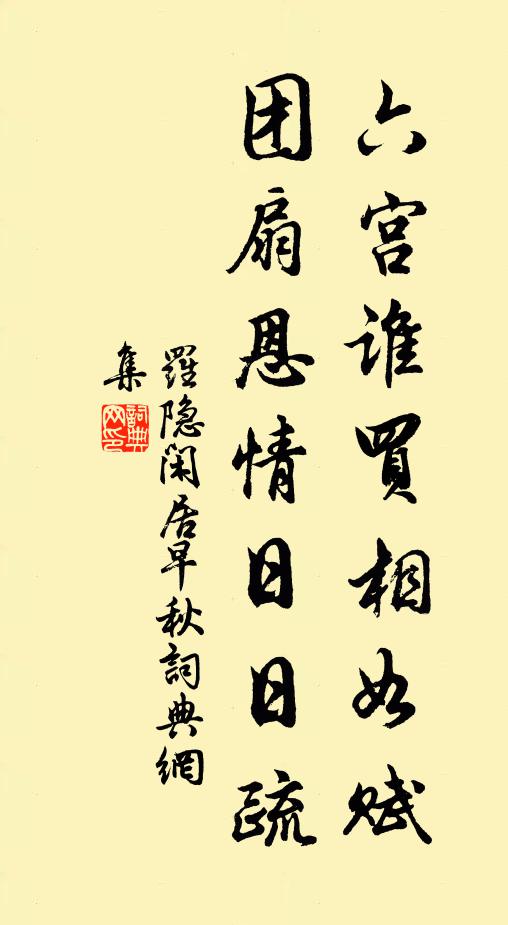 六宫谁買相如赋
团扇恩情日日疏
羅隐闲居早秋詞典網
集
詞典网印